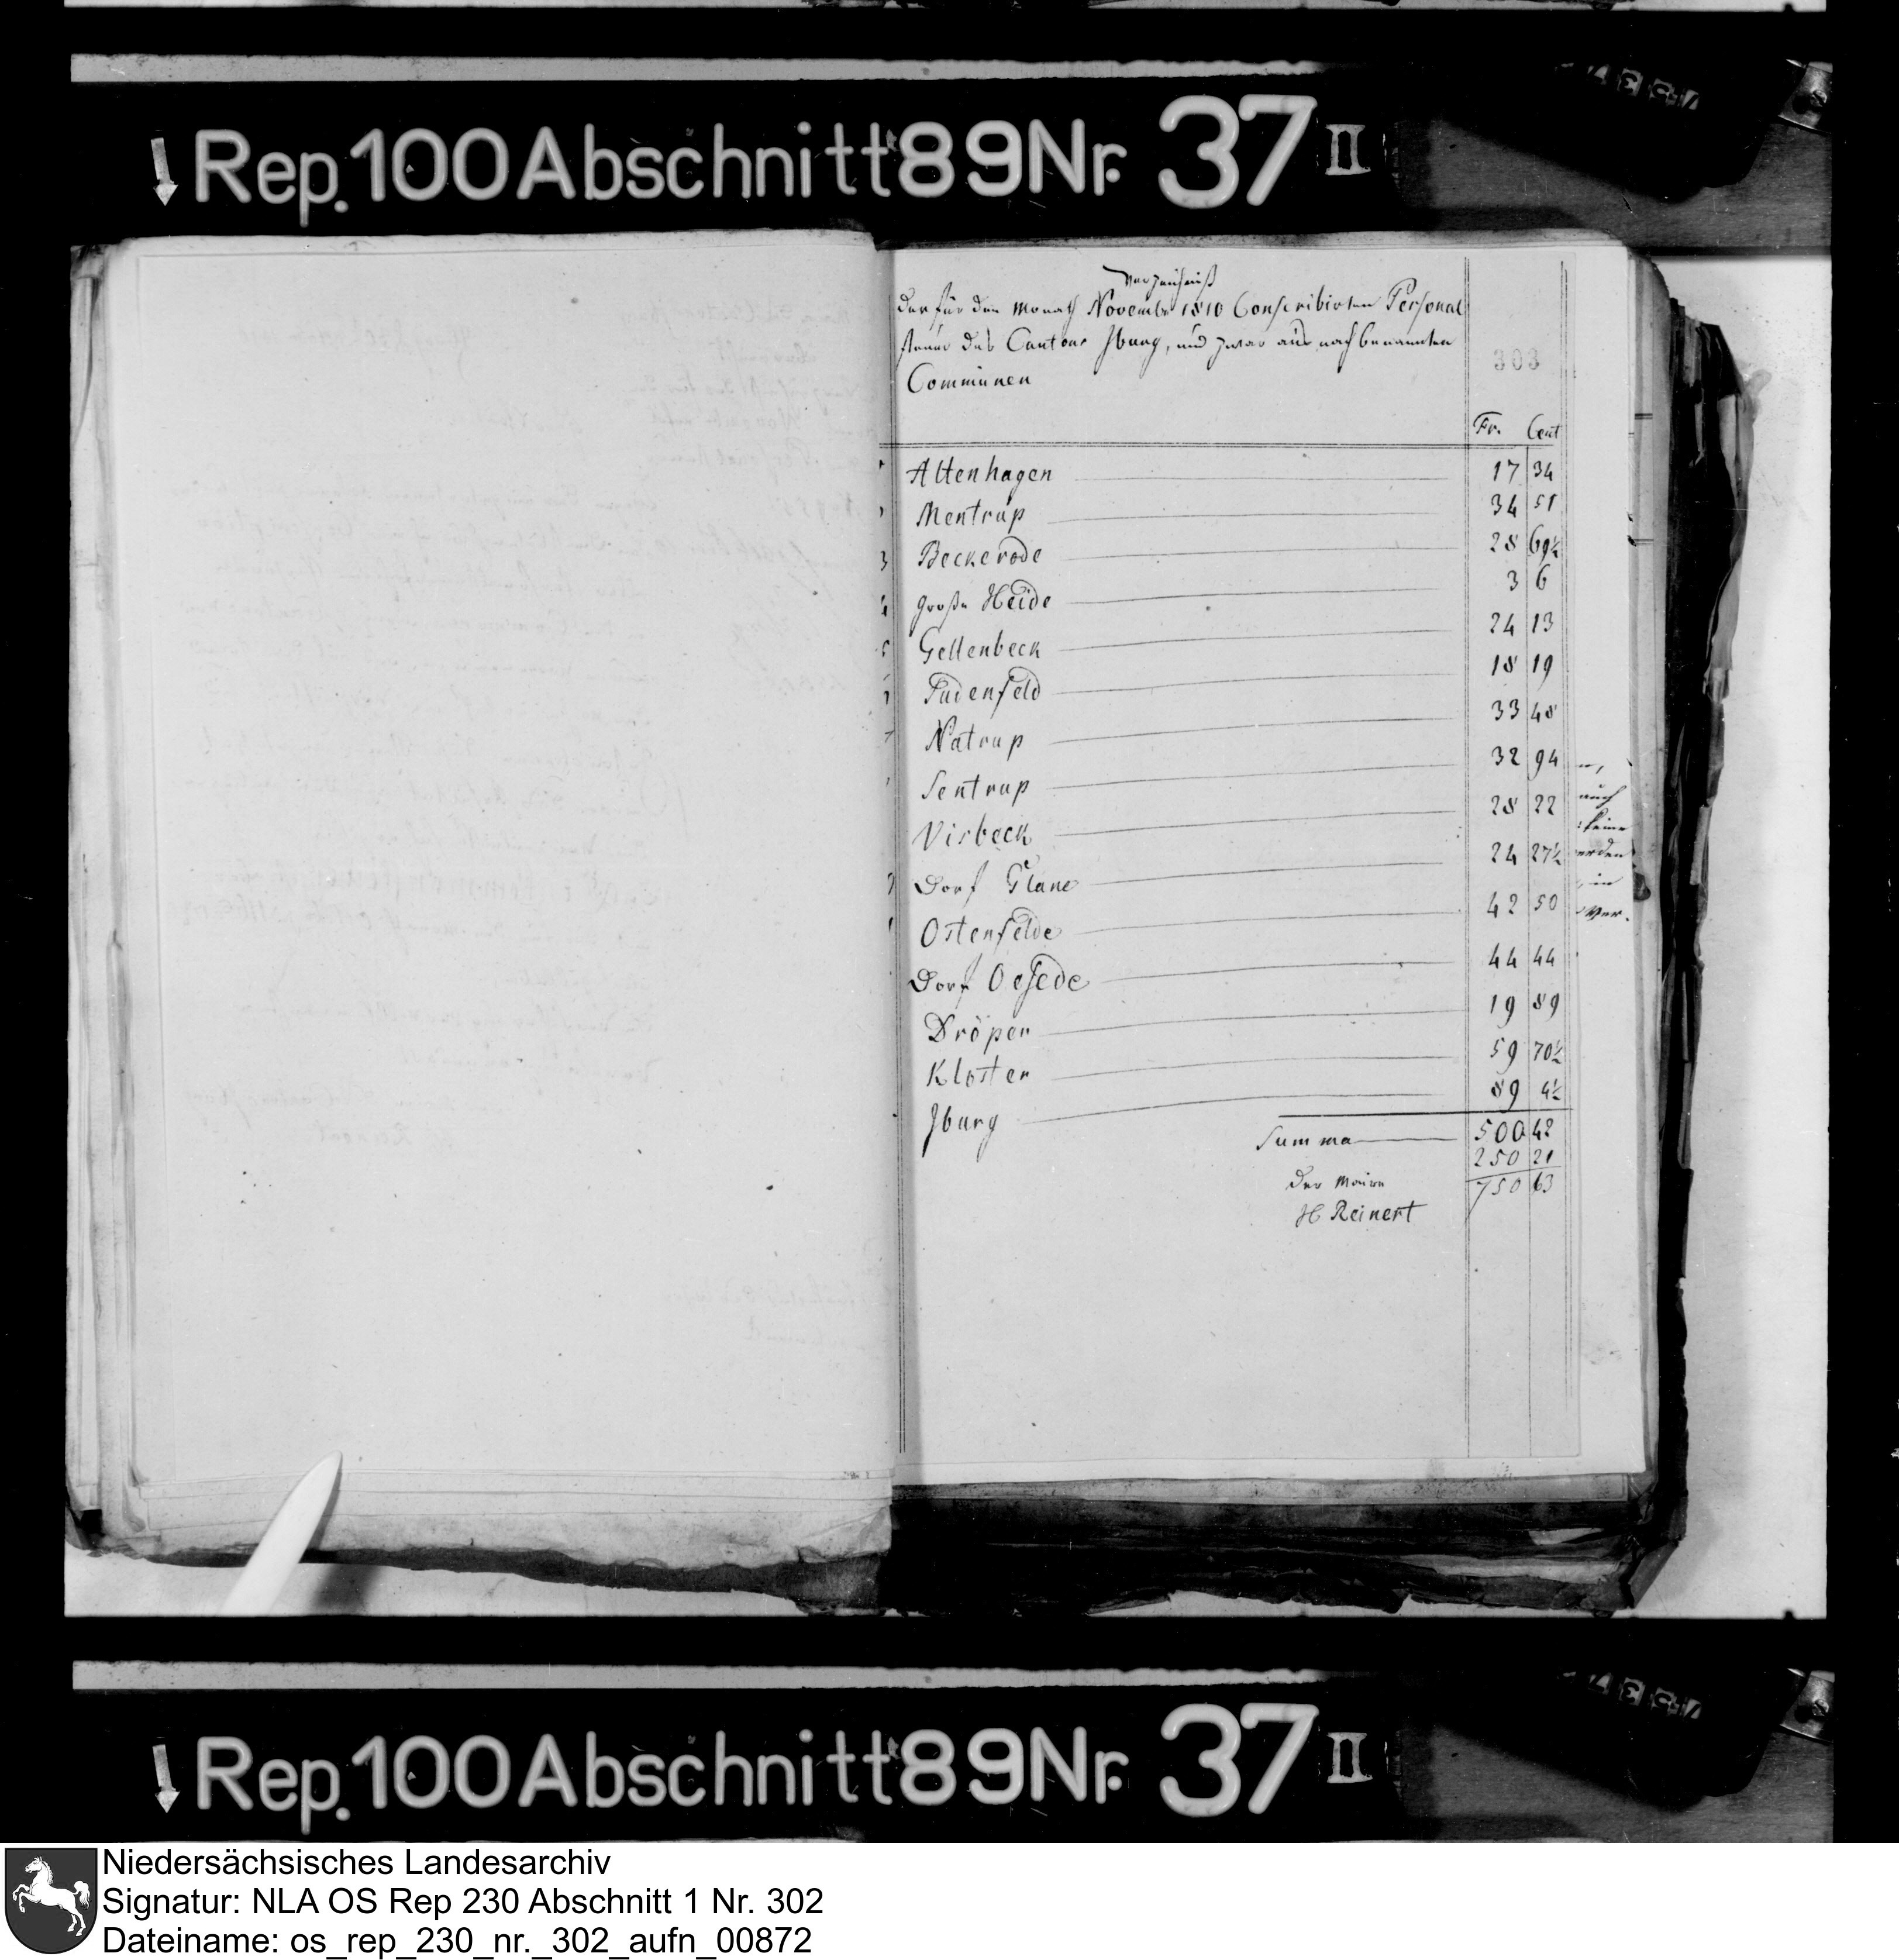 Rep. 100 Abschnitt 89 Nr. 37 II
Verzeichniß
der für den Monath November 1810 Conscribirten Personal
steuer des Cantons Iburg, und zwar aus nachbenannten
Communen
303
Fr. Cent
Altenhagen 17 34
Mentrup 34 51
3 Beckerode 28 69½
4 große Heide 3 6
5 Gellenbeck 24 13
Sudenfeld 18 19
Natrup 33 48
Sentrup 32 94
Visbeck 28 22
Dorf Glane 24 27½
Ostenfelde 42 50
Dorf Oesede 44 44
Dröper 19 89
Kloster 59 70½
Iburg 89 4½
Summa 500 42
250 21
750 63
Der Maire
H Reinert
auch
keine
Rep. 100 Abschnitt 89 Nr. 37 II
Niedersächsisches Landesarchiv
Signatur: NLA OS Rep 230 Abschnitt 1 Nr. 302
Dateiname: os_rep_230_nr._302_aufn_00872